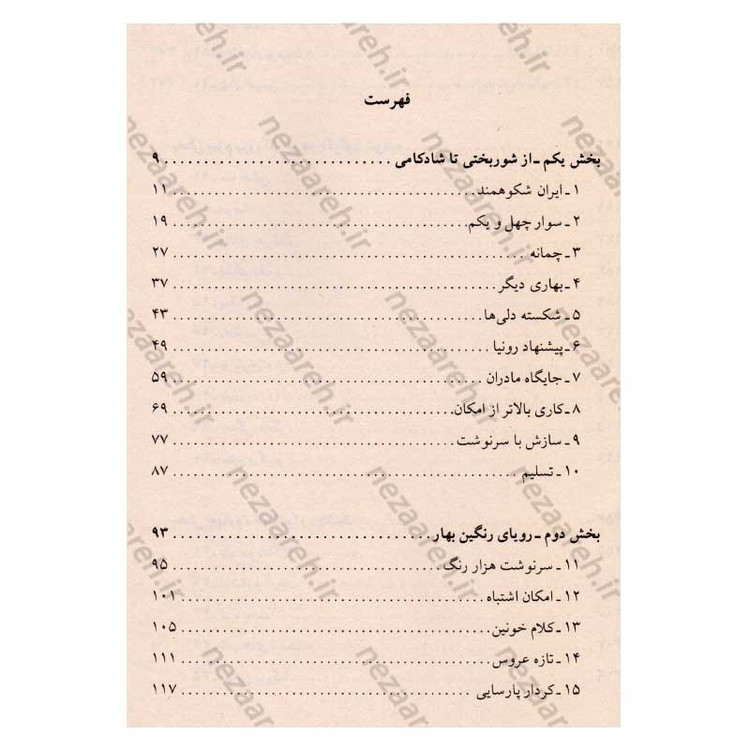 فهرست
بخش یکم ـ از شوربختی تا شادکامی ............................ ۹
۱ ـ ایران شکوهمند ............................ ۱۱
۲ ـ سوار چهل و یکم ............................ ۱۹
۳ ـ چمانه ............................ ۲۷
۴ ـ بهاری دیگر ............................ ۳۷
۵ ـ شکسته دلی‌ها ............................ ۴۳
۶ ـ پیشنهاد رونیا ............................ ۴۹
۷ ـ جایگاه مادران ............................ ۵۹
۸ ـ کاری بالاتر از امکان ............................ ۶۹
۹ ـ سازش با سرنوشت ............................ ۷۷
۱۰ ـ تسلیم ............................ ۸۷
بخش دوم ـ رویای رنگین بهار ............................ ۹۳
۱۱ ـ سرنوشت هزار رنگ ............................ ۹۵
۱۲ ـ امکان اشتباه ............................ ۱۰۱
۱۳ ـ کلام خونین ............................ ۱۰۵
۱۴ ـ تازه عروس ............................ ۱۱۱
۱۵ ـ کردار پارسایی ............................ ۱۱۷
nezaareh.ir